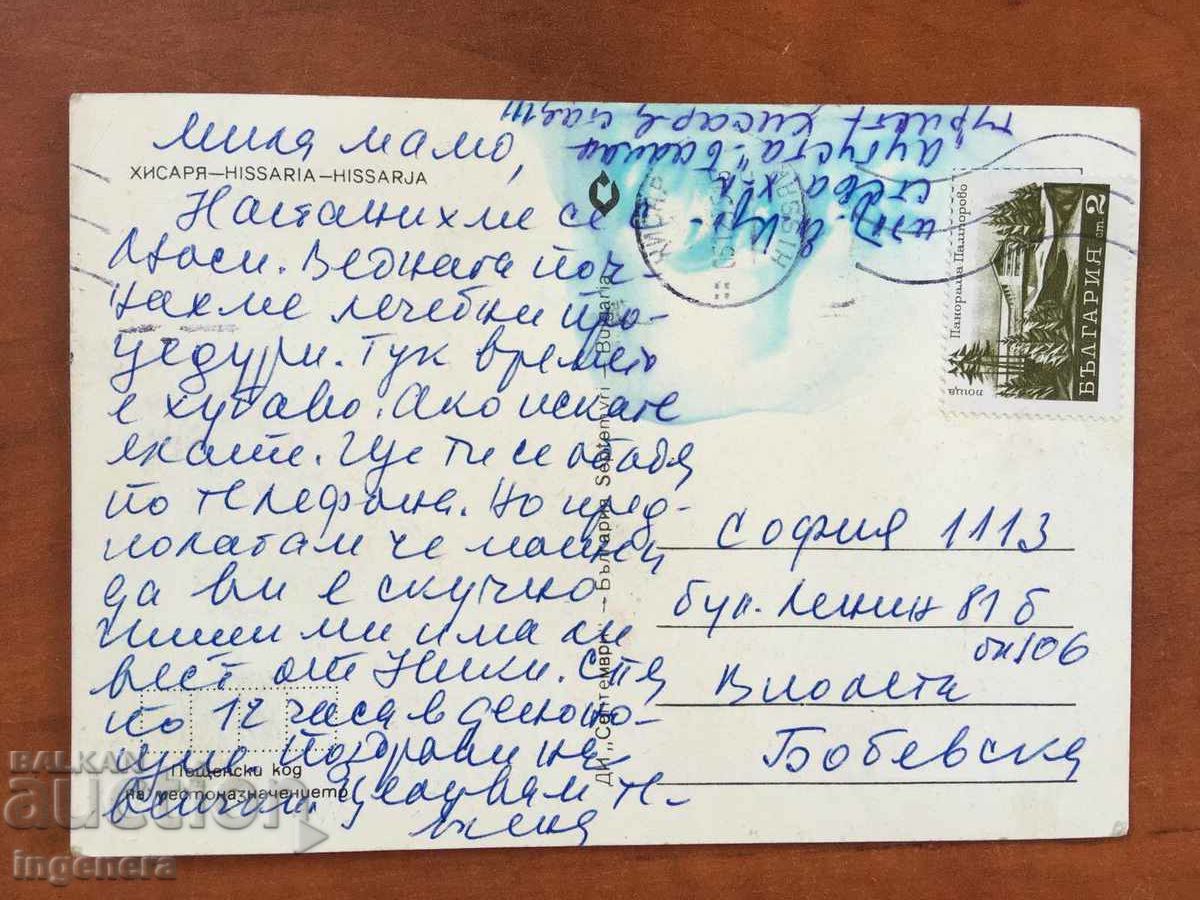 Мила мамо,
ХИСАРЯ—HISSARIA—HISSARJA
Настанихме се
. Веднага поч-
нахме лечебни про-
цедури. Тук времето
е хубаво. Ако искате
елате. Ще ти се обадя
по телефона. Но пред-
полагам че
да ви е скучно
Пиши ми има ли
вест от Ники. Спя
по 12 часа в деноно-
щие. Поздрави на
всички. Целувам те-
Пощенски код
на местоназначението
ДИ „Септември" – България Septemvri – Bulgaria
"Аугуста"
България
ст 2
Панорама Пампорово
поща
София 1113
бул. Ленин 81б
бл 106
Виолета
Бобевска
BALKAN
auction
ingenera